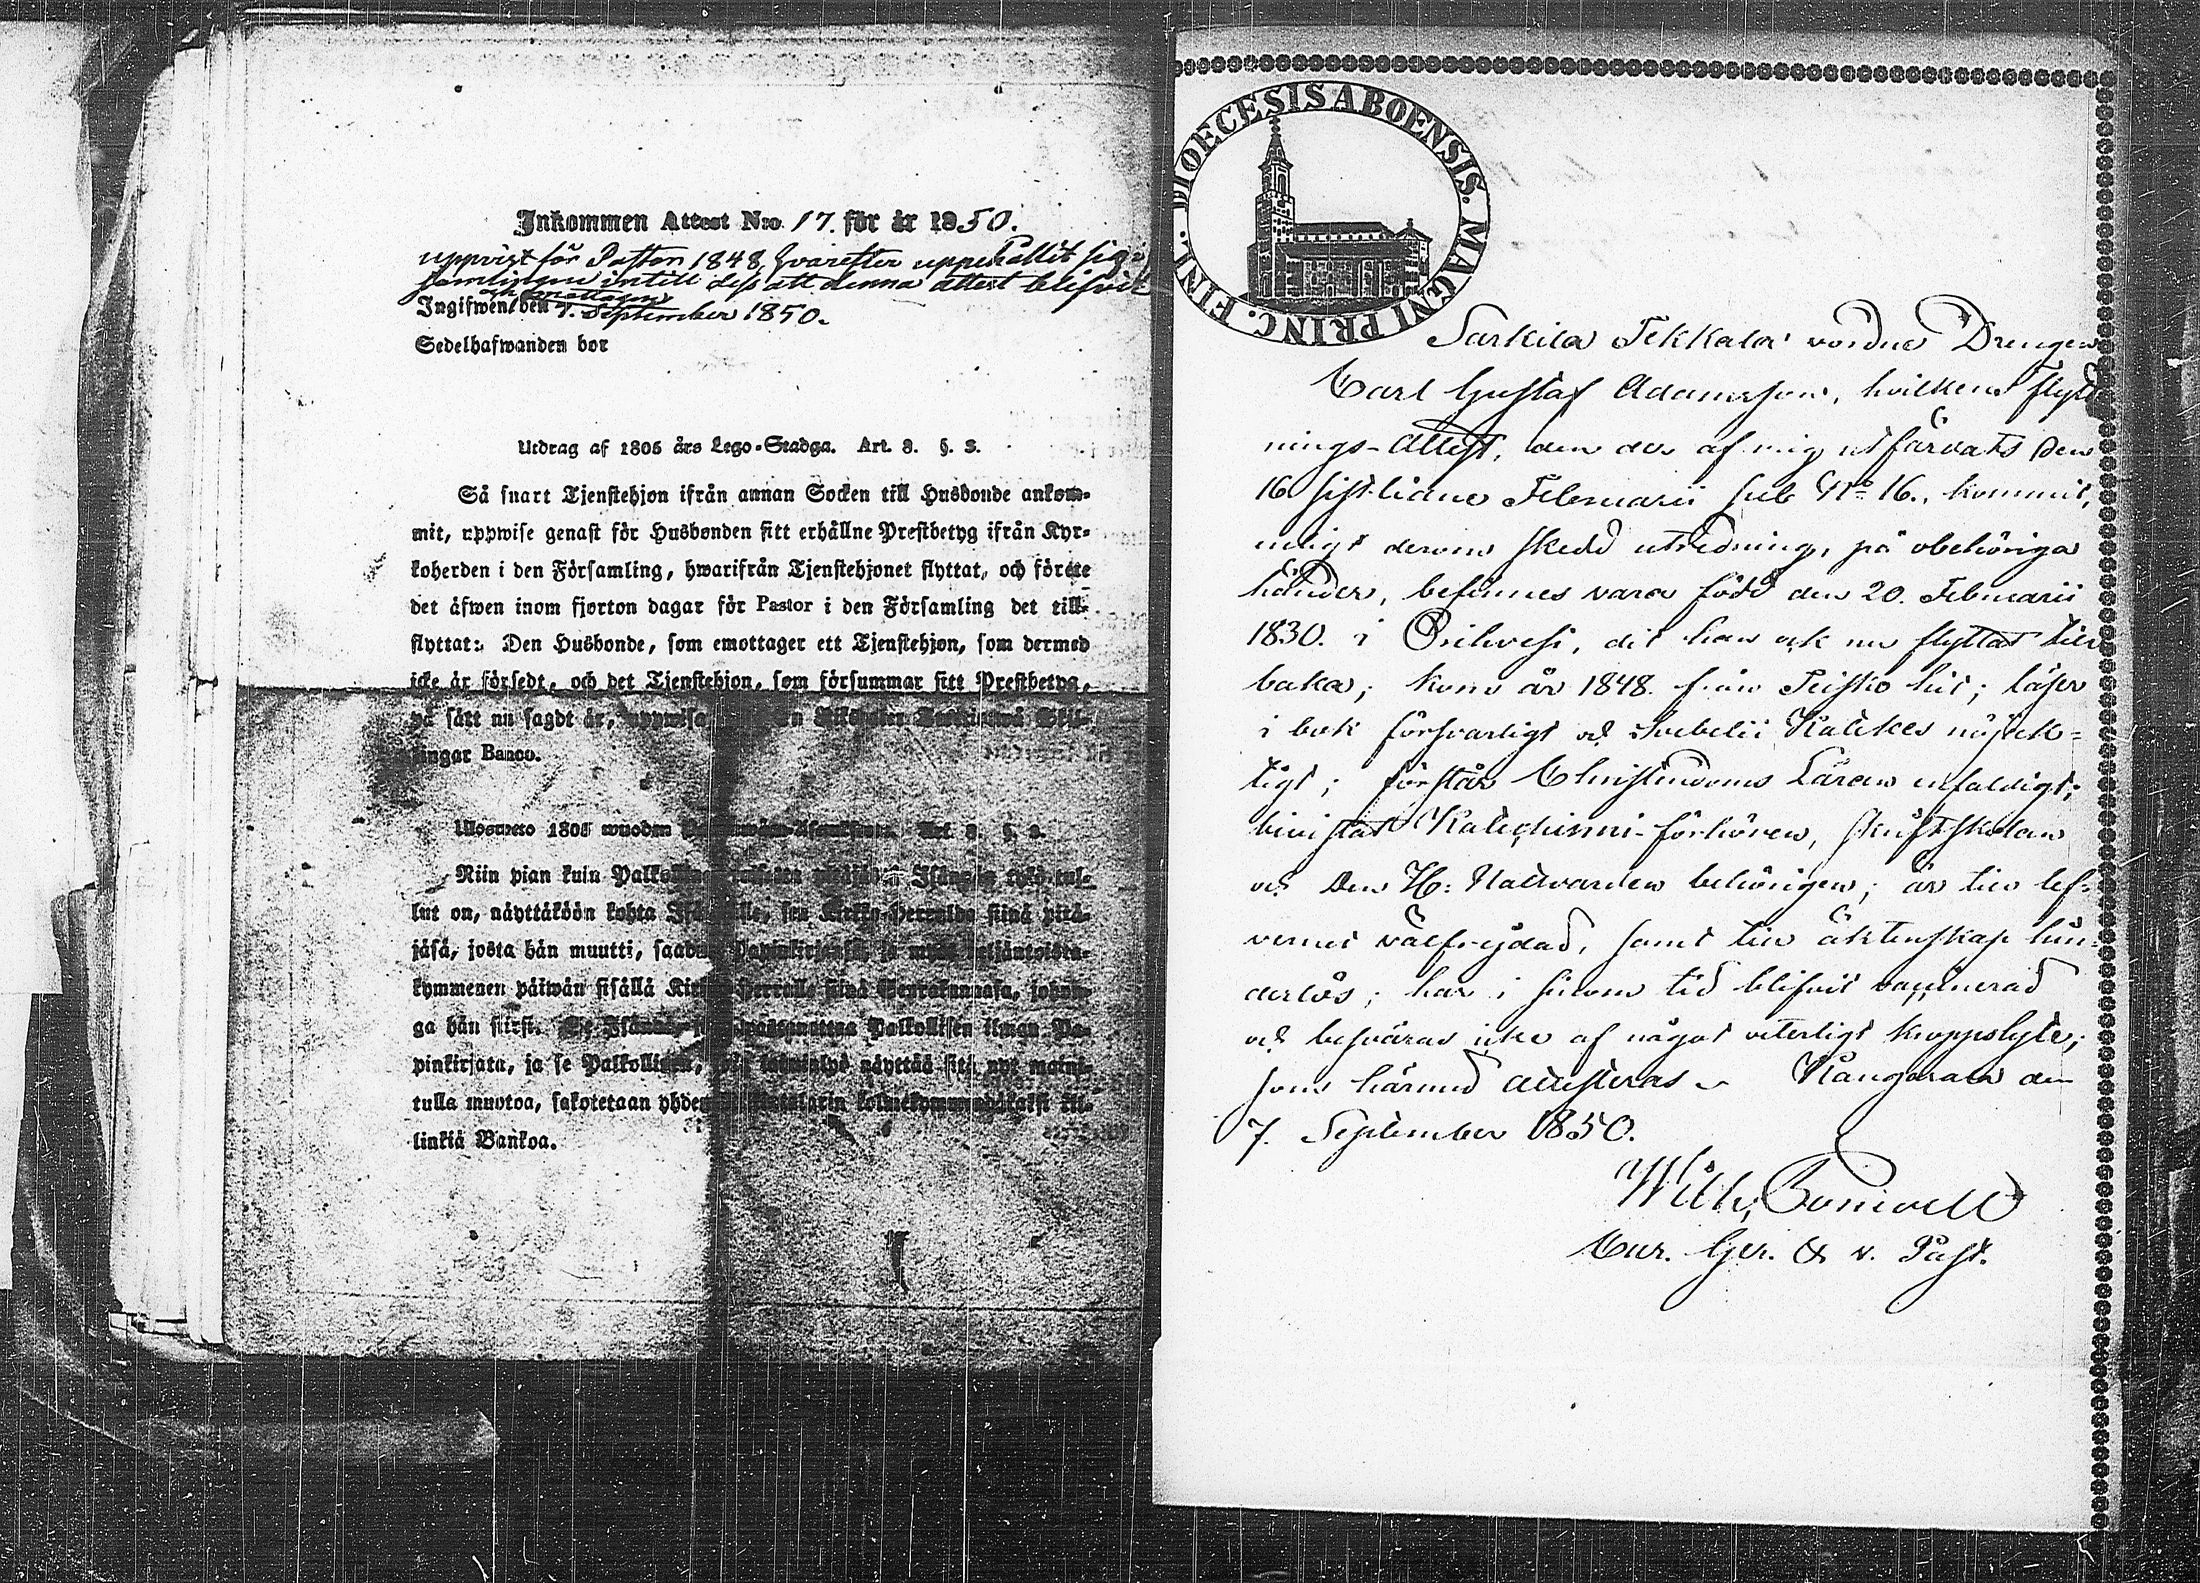 Inkommen Attest N:ro 17. för år 1850.
uppvist för Pastor 1848, hvarefter uppehållit sig i
församlingen intill dess att denna attest blifvit
emottagen
Ingifwen den 7. September 1850.
Sedelhafwanden bor
Utdrag af 1805 års Lego-Stadga. Art. 3. §. 3.
Så snart Tjenstehjon ifrån annan Socken till Husbonde ankom-
mit, uppwise genast för Husbonden sitt erhållne Prestbetyg ifrån Kyr-
koherden i den Församling, hwarifrån Tjenstehjonet flyttat, och förete
det äfwen inom fjorton dagar för Pastor i den Församling det till-
flyttat: Den Husbonde, som emottager ett Tjenstehjon, som dermed
icke är försedt, och det Tjenstehjon, som försummar sitt Prestbetyg,
på sätt nu sagdt är, uppwisa Skil-
lingar Banco.
Ulosweto 1805 wuoden Art. 3. §. 3.
Niin pian kuin Isännän tykö tul-
lut on, näyttäköön kohta sen Kirkko-Herralda siinä pitä-
jäsä, josta hän muutti, saadun Papinkirjansa, ja neljäntoista-
kymmenen päiwän sisällä Kirkko-Herralle siinä Seurakunnasa, johon-
ga hän siirsi. Palkollisen ilman Pa-
pinkirjata, ja se Palkollinen, näyttää sitä, nyt maini-
tulla muotoa, sakotetaan yhden kolmekymmendäkaksi kil-
linkiä Bankoa.
DIOECESIS ABOENSIS. MAGNI PRINC. FINL.
Sarkila Tekkala vordne Drengen
Carl Gustaf Adamsson, hvilkens flytt-
nings-Attest, den der af mig utfärdats den
16 sistlidne Februarii sub N:o 16., kommit,
enligt derom skedd utredning, på obehöriga
händer, befinnes vara född den 20. Februarii
1830. i Orihvesi, dit han ock nu flyttar till
baka; kom år 1848. från Teisko hit; läser
i bok försvarligt och Svebelii Kateches nöjak-
tigt; förstår Christendoms Läran enfaldigt;
bivistat Katechismi-förhören, Skriftskolan
och Den H: Nattvarden behörigen; är till lef-
vernet välfrejdad, samt till äktenskap hin-
derlös; har i sinom tid blifvit vaccinerad
och besväras icke af något veterligt kroppslyte;
som härmed attesteras. Kangasala den
7. September 1850.
Wilh.
Cur. Ger. & v. Past.